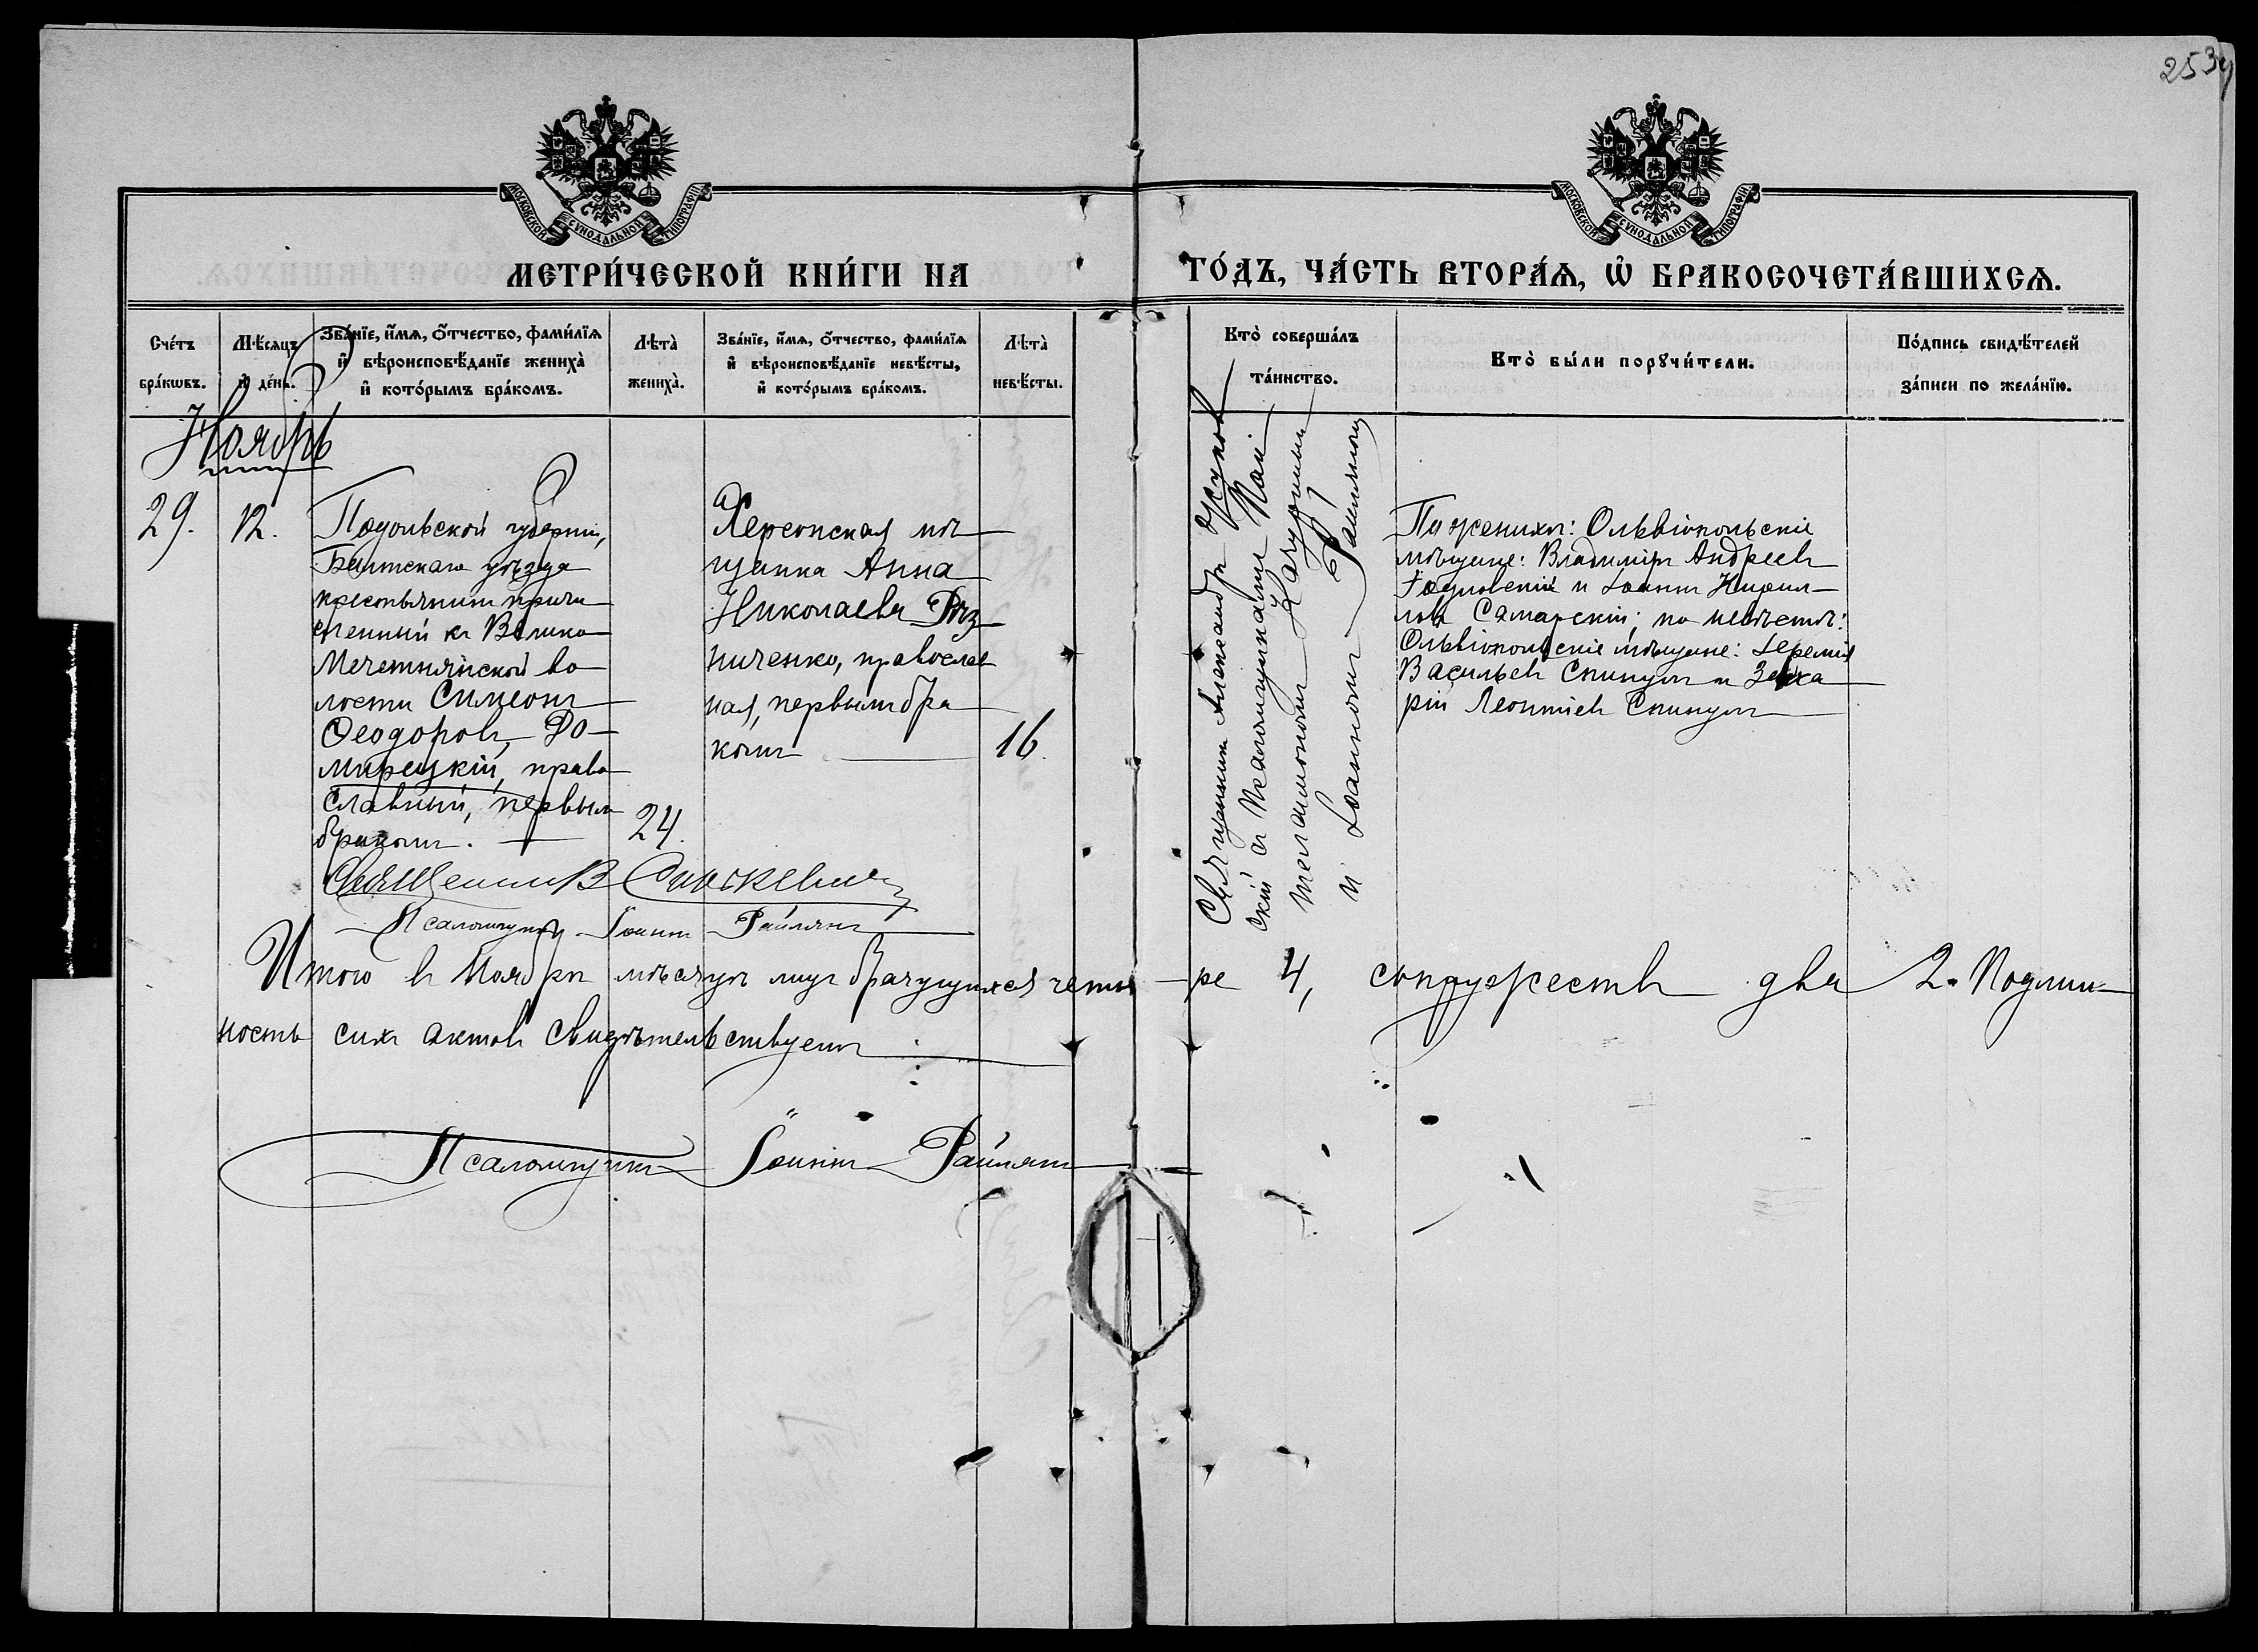 253
МОСКОВСКОЙ СѴНОДАЛЬНОЙ ТИПОГРАФІИ
МОСКОВСКОЙ СѴНОДАЛЬНОЙ ТИПОГРАФІИ
МЕТРИ́ЧЕСКОЙ КНИ́ГИ НА
ГО́ДЪ, ЧА́СТЬ ВТОРА́Ѧ, Ѡ҆ БРАКОСОЧЕТА́ВШИХСѦ.
Сче́тъ
бра́кѡвъ.
Мѣ́сѧцъ
и҆ де́нь.
Зва́нїе, и҆́мѧ, ѻ҆́тчество, фами́лїѧ
и҆ вѣроисповѣ́данїе жениха̀
и҆ кото́рымъ бра́комъ.
Лѣта̀
жениха̀.
Зва́нїе, и҆́мѧ, ѻ҆́тчество, фами́лїѧ
и҆ вѣроисповѣ́данїе невѣ́сты,
и҆ кото́рымъ бра́комъ.
Лѣта̀
невѣ́сты.
Кто̀ соверша́лъ
та́инство.
Кто̀ бы́ли порꙋчи́тели.
По́дпись свидѣ́телей
за́писи по жела́нїю.
Ноябрь
29.
12.
Подольской губерніи,
Балтскаго уѣзда
крестьянинъ причи
сленный къ Велико
Мечетнянской во
лости Симеонъ
Ѳеодоровъ, До-
мирецкій, право
славный, первымъ
бракомъ.
24.
Херсонская мѣ
щанка Анна
Николаева Рѣз
ниченко, православ
ная, первымъ бра
комъ
16.
Священникъ Александръ
скій съ псаломщиками Пан
телеимономъ
и Іоанномъ Раиляномъ
По женихѣ: Ольвіопольскіе
мѣщане: Владиміръ Андреевъ
и Іоаннъ Кирил
ловъ Самарскій; по невѣстѣ:
Ольвіопольскіе мѣщане: Іеремія
Васильевъ Спинулъ и Заха
рій Леонтіевъ Спинулъ
Священникъ
Псаломщикъ Іоаннъ Раилянъ
Итого въ Ноябрѣ мѣсяцѣ лицъ брачущихся четы-ре 4, супружествъ два 2. Подлин
ность сихъ актовъ свидѣтельствуемъ:
Псаломщикъ Іоаннъ Раилянъ